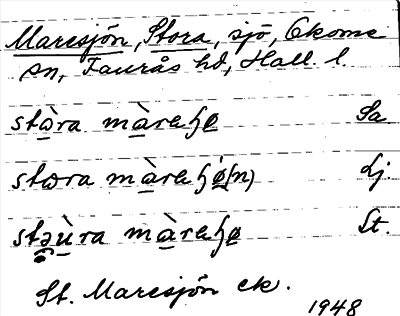 Maresjön, Stora, sjö, Okome
sn, Faurås hd, Hall. l.
stɷ̀ra màraɧø Sa
stɷra màraɧǿ(n) Lj.
stəù̯ra màraɧø St.
St. Maresjön ek.
1948